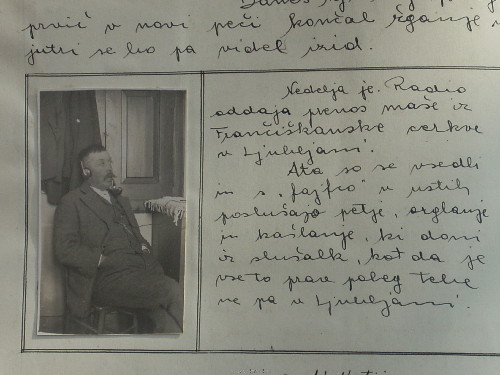 Danes je
prvič v novi peči končal žganje
jutri se bo pa videl izid.
Nedelja je. Radio
oddaja prenos maše iz
Frančiškanske cerkve
v Ljubljani.
Ata so se vsedli
in s "fajfo" v ustih
poslušajo petje, orglanje
in kašljanje, ki doni
iz slušalk, kot da je
vse to prav poleg tebe
ne pa v Ljubljani.